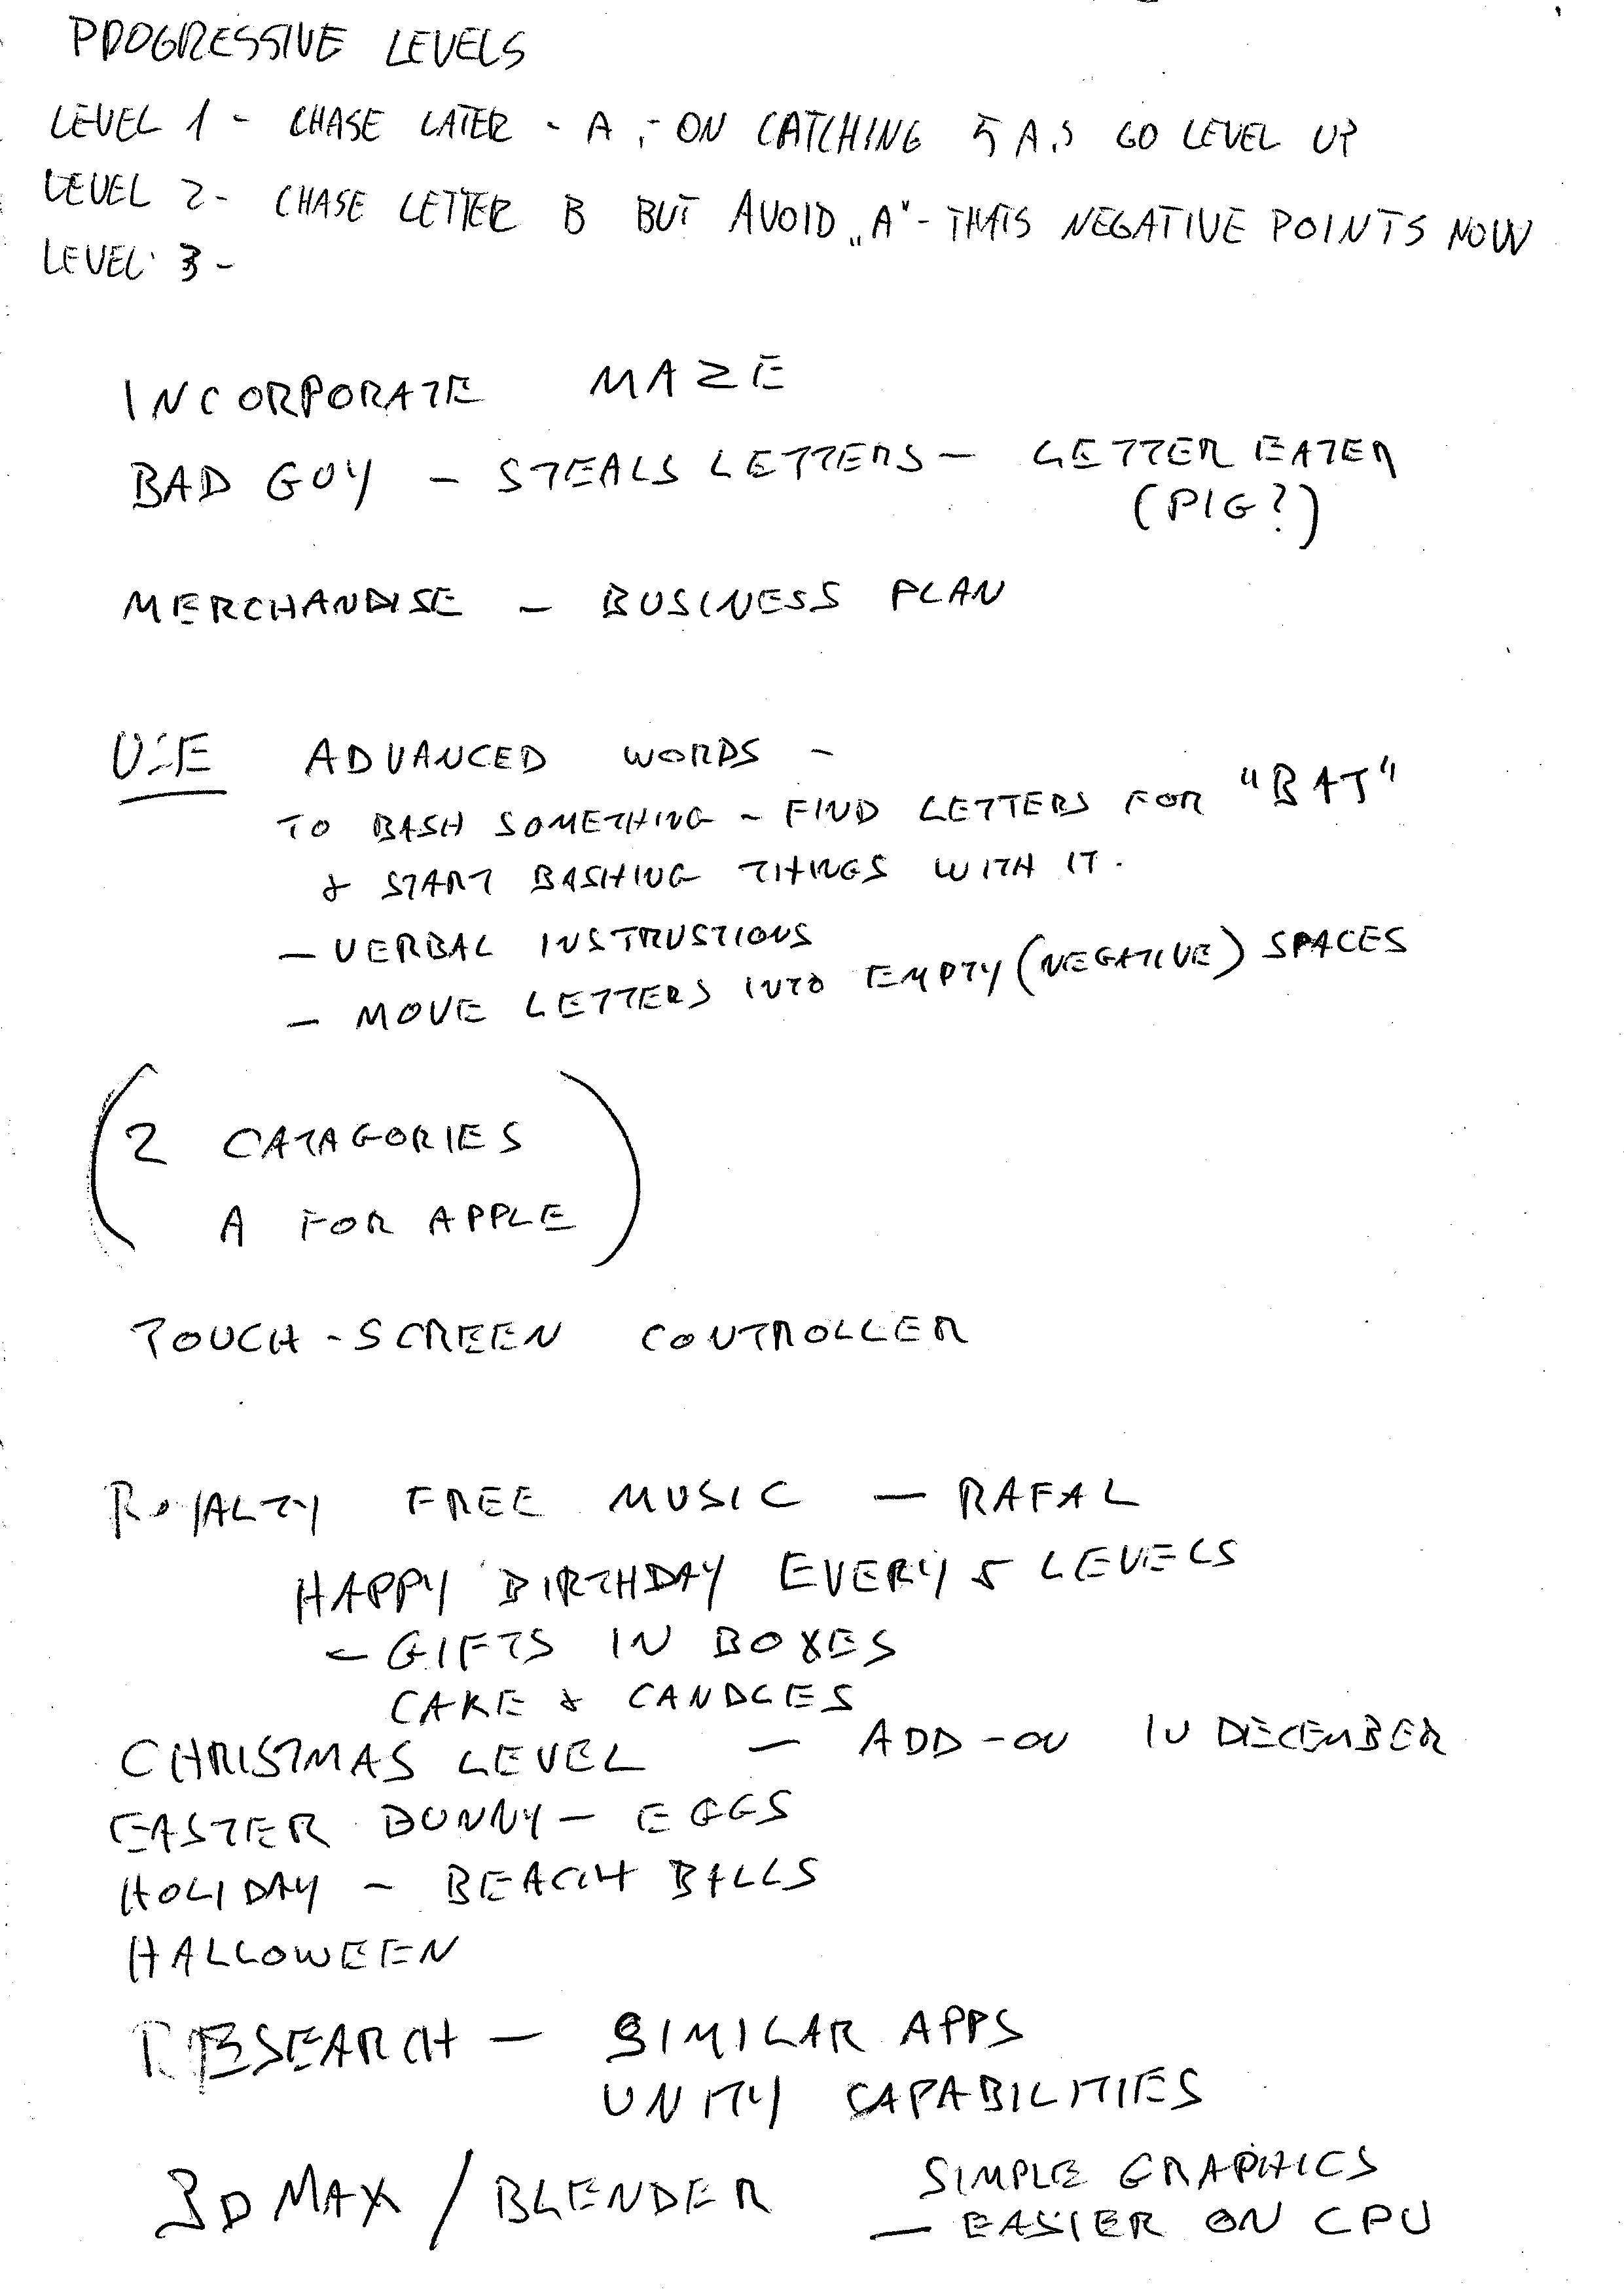 PROGRESSIVE LEVELS
LEVEL 1 - CHASE LATER - A - ON CATCHING 5 A.S GO LEVEL UP
LEVEL 2 - CHASE LETTER B BUT AVOID „A" - THATS NEGATIVE POINTS NOW
LEVEL 3 -
INCORPORATE MAZE
BAD GUY - STEALS LETTERS - LETTER EATER
(PIG?)
MERCHANDISE - BUSINESS PLAN
USE ADVANCED WORDS -
TO BASH SOMETHING - FIND LETTERS FOR "BAT"
& START BASHING THINGS WITH IT.
- VERBAL INSTRUSTIONS
- MOVE LETTERS INTO EMPTY (NEGATIVE) SPACES
(2 CATAGORIES
A FOR APPLE)
TOUCH-SCREEN CONTROLLER
ROYALTY FREE MUSIC - RAFAL
HAPPY BIRTHDAY EVERY 5 LEVELS
- GIFTS IN BOXES
CAKE & CANDLES
CHRISTMAS LEVEL - ADD-ON IN DECEMBER
EASTER BUNNY - EGGS
HOLIDAY - BEACH BALLS
HALLOWEEN
RESEARCH - SIMILAR APPS
UNITY CAPABILITIES
3D MAX / BLENDER SIMPLE GRAPHICS
- EASIER ON CPU